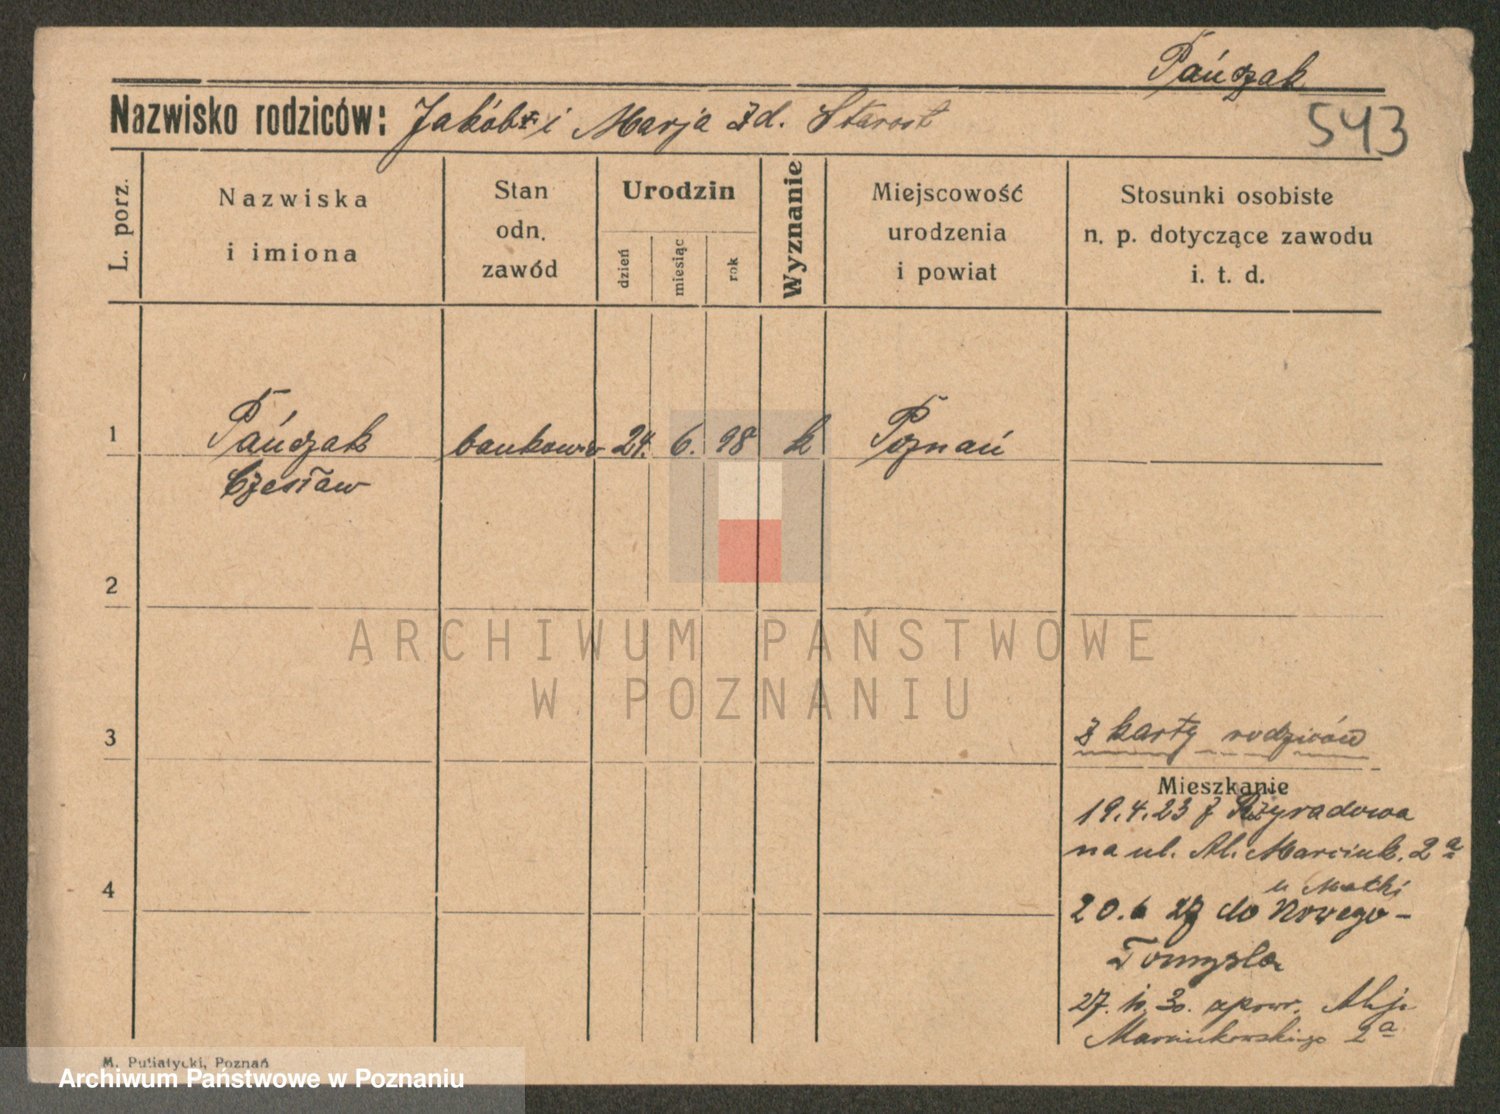 Pańczak
543
Nazwisko rodziców: Jakób i Marja zd. Starost
L. porz.
Nazwiska
i imiona
Stan
odn.
zawód
Urodzin
dzień
miesiąc
rok
Wyznanie
Miejscowość
urodzenia
i powiat
Stosunki osobiste
n. p. dotyczące zawodu
i. t. d.
1 Pańczak bankowiec 24. 6. 98 k Poznań
Czesław
2
ARCHIWUM PAŃSTWOWE
W POZNANIU
3
z karty rodziców
Mieszkanie
19.4.23 z Żyradowa
na ul. Al. Marcink. 2a
u Matki
4
20.6 27 do Nowego-
Tomyśla
27. 10. 30. zpowr. Aleje
Marcinkowskiego 2a
M. Putiatycki, Poznań
Archiwum Państwowe w Poznaniu